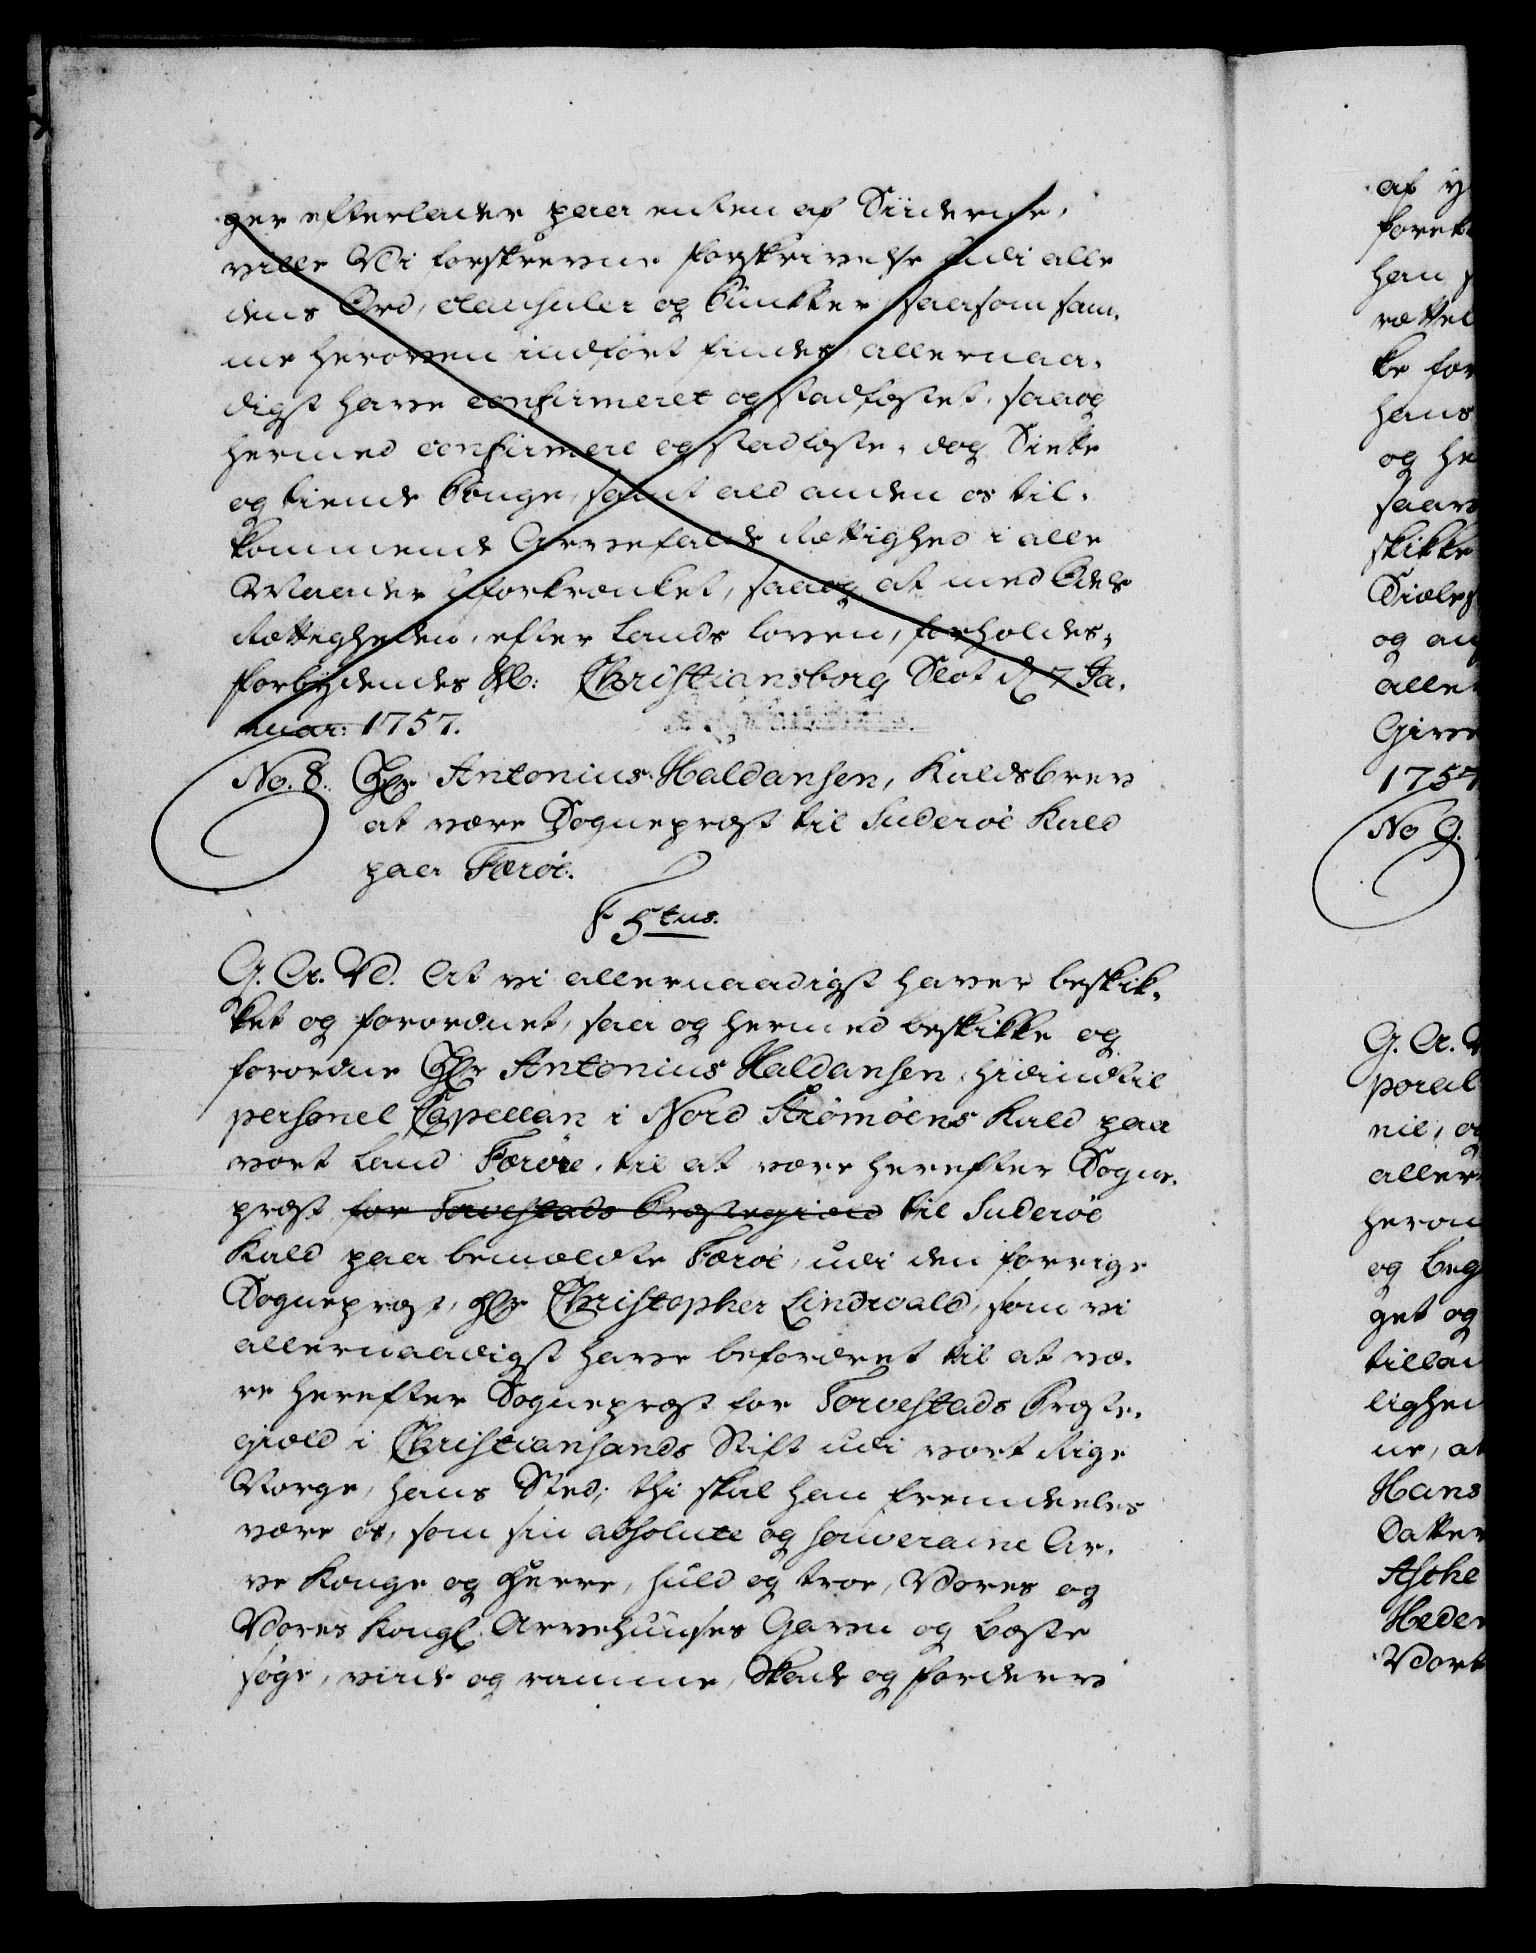 ger efterlader paa enten af Siiderne,
ville Vi forskrevne forskrivelse udi alle
dens Ord, clausuler og Puncter, saasom sam-
me heroven indført findes, allernaa-
digst have confirmeret og stadfæstet, saa og
hermed confirmere og stadfæste, dog Siette
og tiende Penge, samt ald anden os til-
kommende Arvefalds Rettighed i alle
Maader uforkrænket, saa og at med Odels
Rettigheden, efter Lands Loven, forholdes,
forbydendes &c: Christiansborg Slot d. 7 Ja-
nuar: 1757.
No. 8. Hr Antonius Haldansen, Kaldsbrev
at være Sognepræst til Suderöe Kald
paa Færöe.
F 5tus.
G. A. V. At vi allernaadigst haver beskik-
ket og forordnet, saa og hermed beskikke og
forordne Hr Antonius Haldansen, hidindtil
personel Capellan i Nord Strömöens Kald paa
vort Land Færöe, til at være herefter Sogne-
præst for Torvestads Præstegield til Suderöe
Kald paa bemældte Færöe, udi den forrige
Sognepræst, Hr Christopher Lindvald, som vi
allernaadigst have befordret til at væ-
re herefter Sognepræst for Torvestads Præste-
gield i Christiansands Stift udi vort Rige
Norge, hans Sted; thi skal han fremdeeles
være os, som sin absolute og souveraine Ar-
ve Konge og Herre, huld og troe, Vores og
Vores Kongl. Arvehuuses Gavn og beste
søge, vide og ramme, Skade og forderv
af
foret
han
rettel
ke for
hans
og he
saav
skikke
Siæle
og an
aller
Give
1757
No 9.
G. A. V
poral
nie, og
aller
heron
og beg
get og
tillad
lighed
ne, at
Hans
Datter
Aschе
Heder
Vort